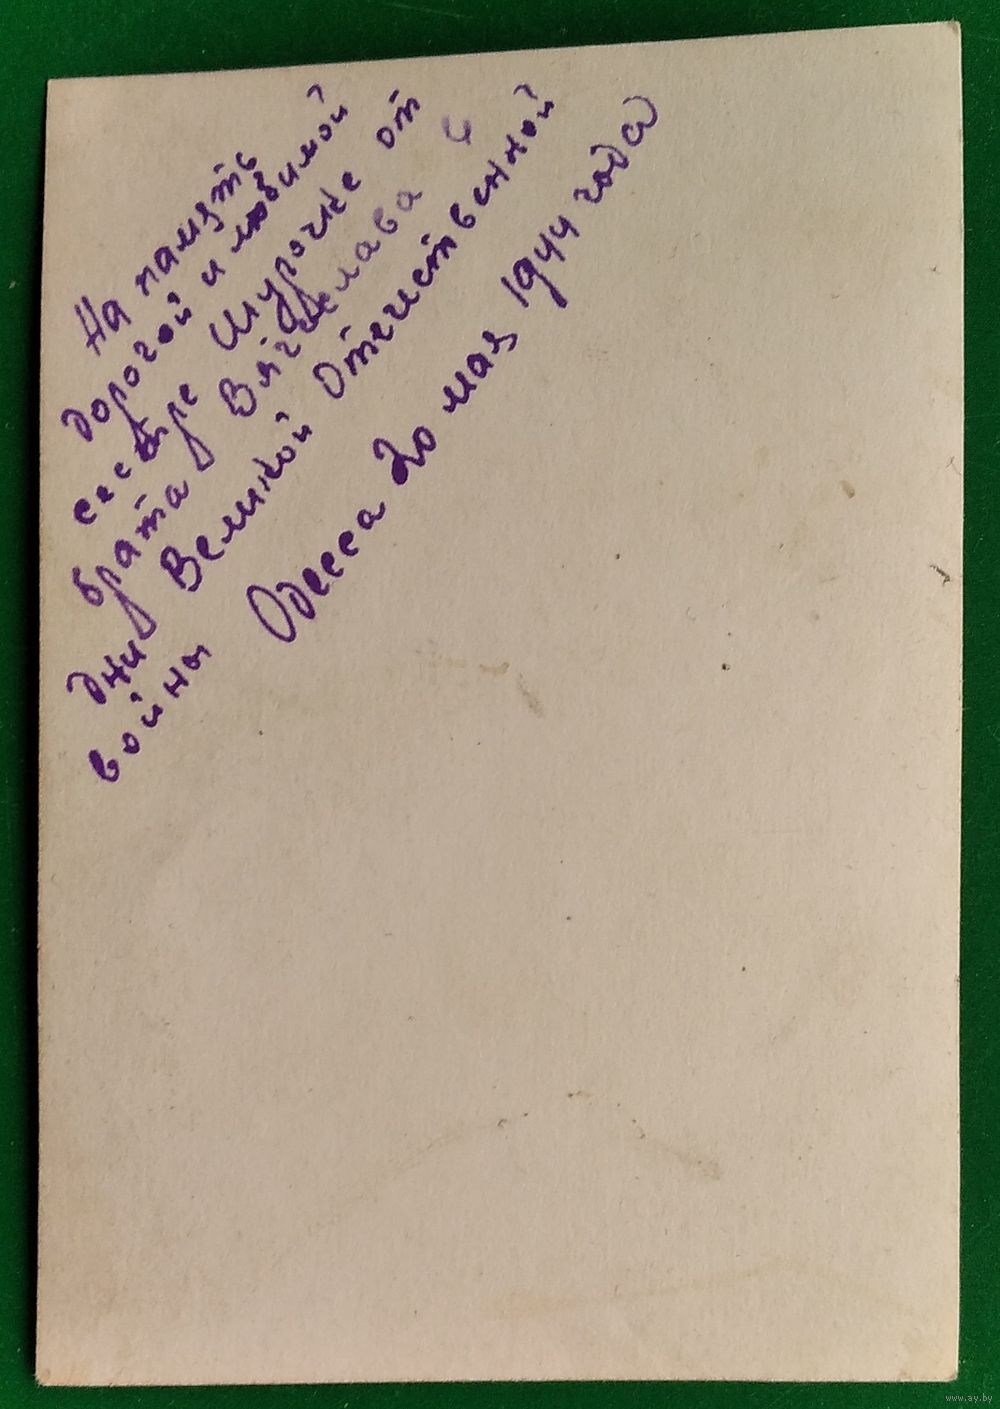 На память
дорогой и любимой
сестре Шурочке от
брата Вячеслава в
дни Великой Отечественной
войны Одесса 20 мая 1944 года
www.ay.by